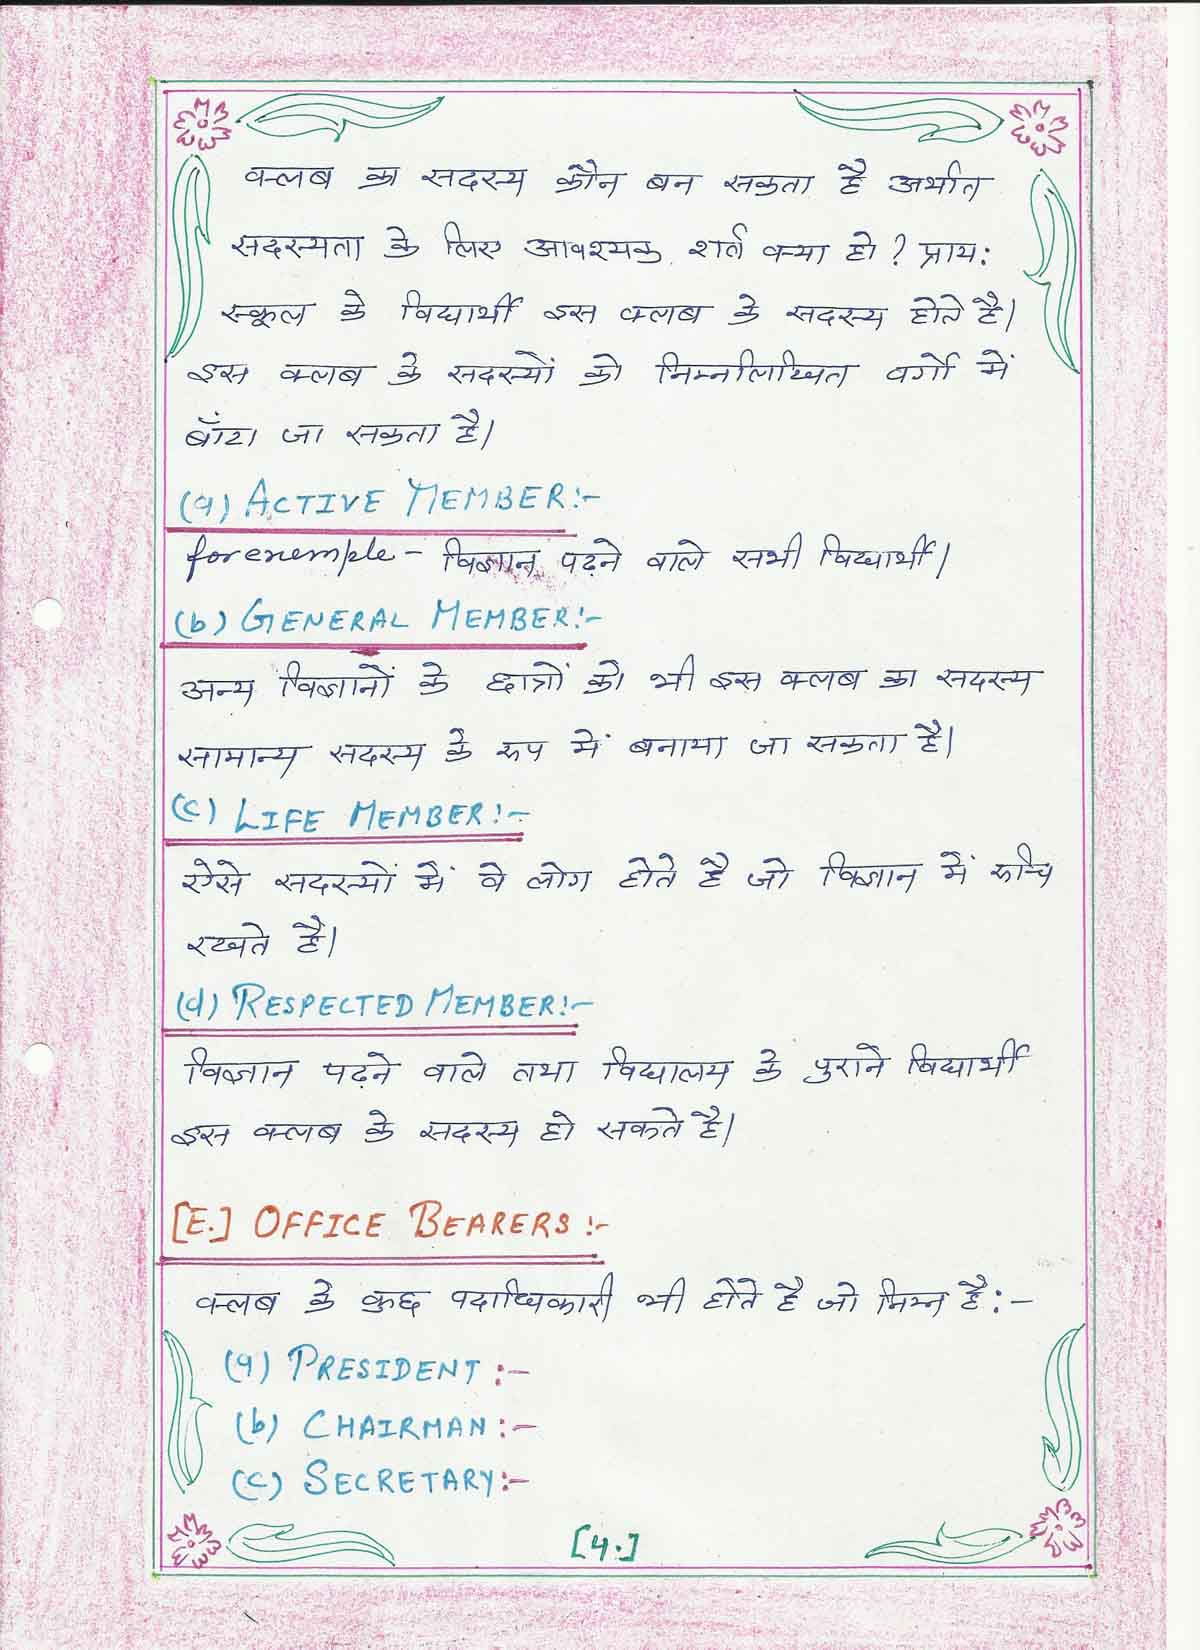 क्लब का सदस्य कौन बन सकता है अर्थात
सदस्यता के लिए आवश्यक शर्त क्या हो? प्राय:
स्कूल के विद्यार्थी इस क्लब के सदस्य होते है।
इस क्लब के सदस्यों को निम्नलिखित वर्गो में
बाँटा जा सकता है।
(a) ACTIVE MEMBER:-
for exemple - विज्ञान पढ़ने वाले सभी विद्यार्थी।
(b) GENERAL MEMBER:-
अन्य विज्ञानों के छात्रों को भी इस क्लब का सदस्य
सामान्य सदस्य के रुप में बनाया जा सकता है।
(c) LIFE MEMBER:-
ऐसे सदस्यों में वे लोग होते है जो विज्ञान में रुचि
रखते है।
(d) RESPECTED MEMBER:-
विज्ञान पढ़ने वाले तथा विद्यालय के पुराने विद्यार्थी
इस क्लब के सदस्य हो सकते है।
[E.] OFFICE BEARERS:-
क्लब के कुछ पदाधिकारी भी होते है जो निम्न है:-
(a) PRESIDENT:-
(b) CHAIRMAN:-
(c) SECRETARY:-
[4.]